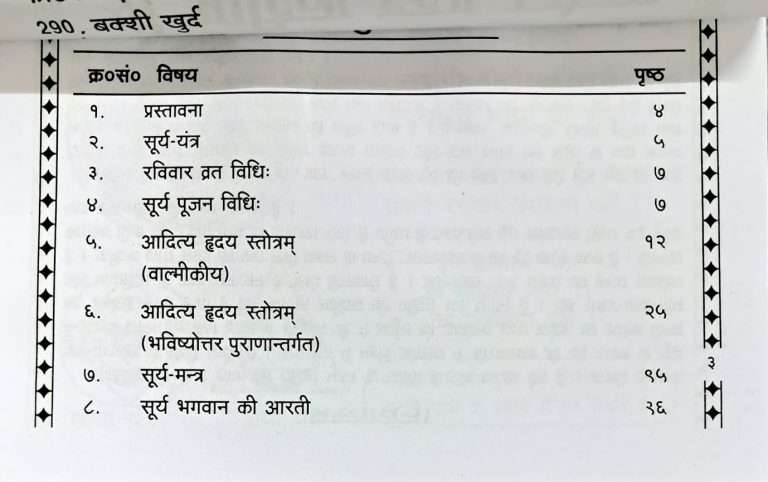 290. बक्शी खुर्द
क्र०सं० विषय पृष्ठ
१. प्रस्तावना ४
२. सूर्य-यंत्र ५
३. रविवार व्रत विधिः ७
४. सूर्य पूजन विधिः ७
५. आदित्य हृदय स्तोत्रम १२
(वाल्मीकीय)
६. आदित्य हृदय स्तोत्रम २५
(भविष्योत्तर पुराणान्तर्गत)
३
७. सूर्य-मन्त्र ९५
८. सूर्य भगवान की आरती ९६